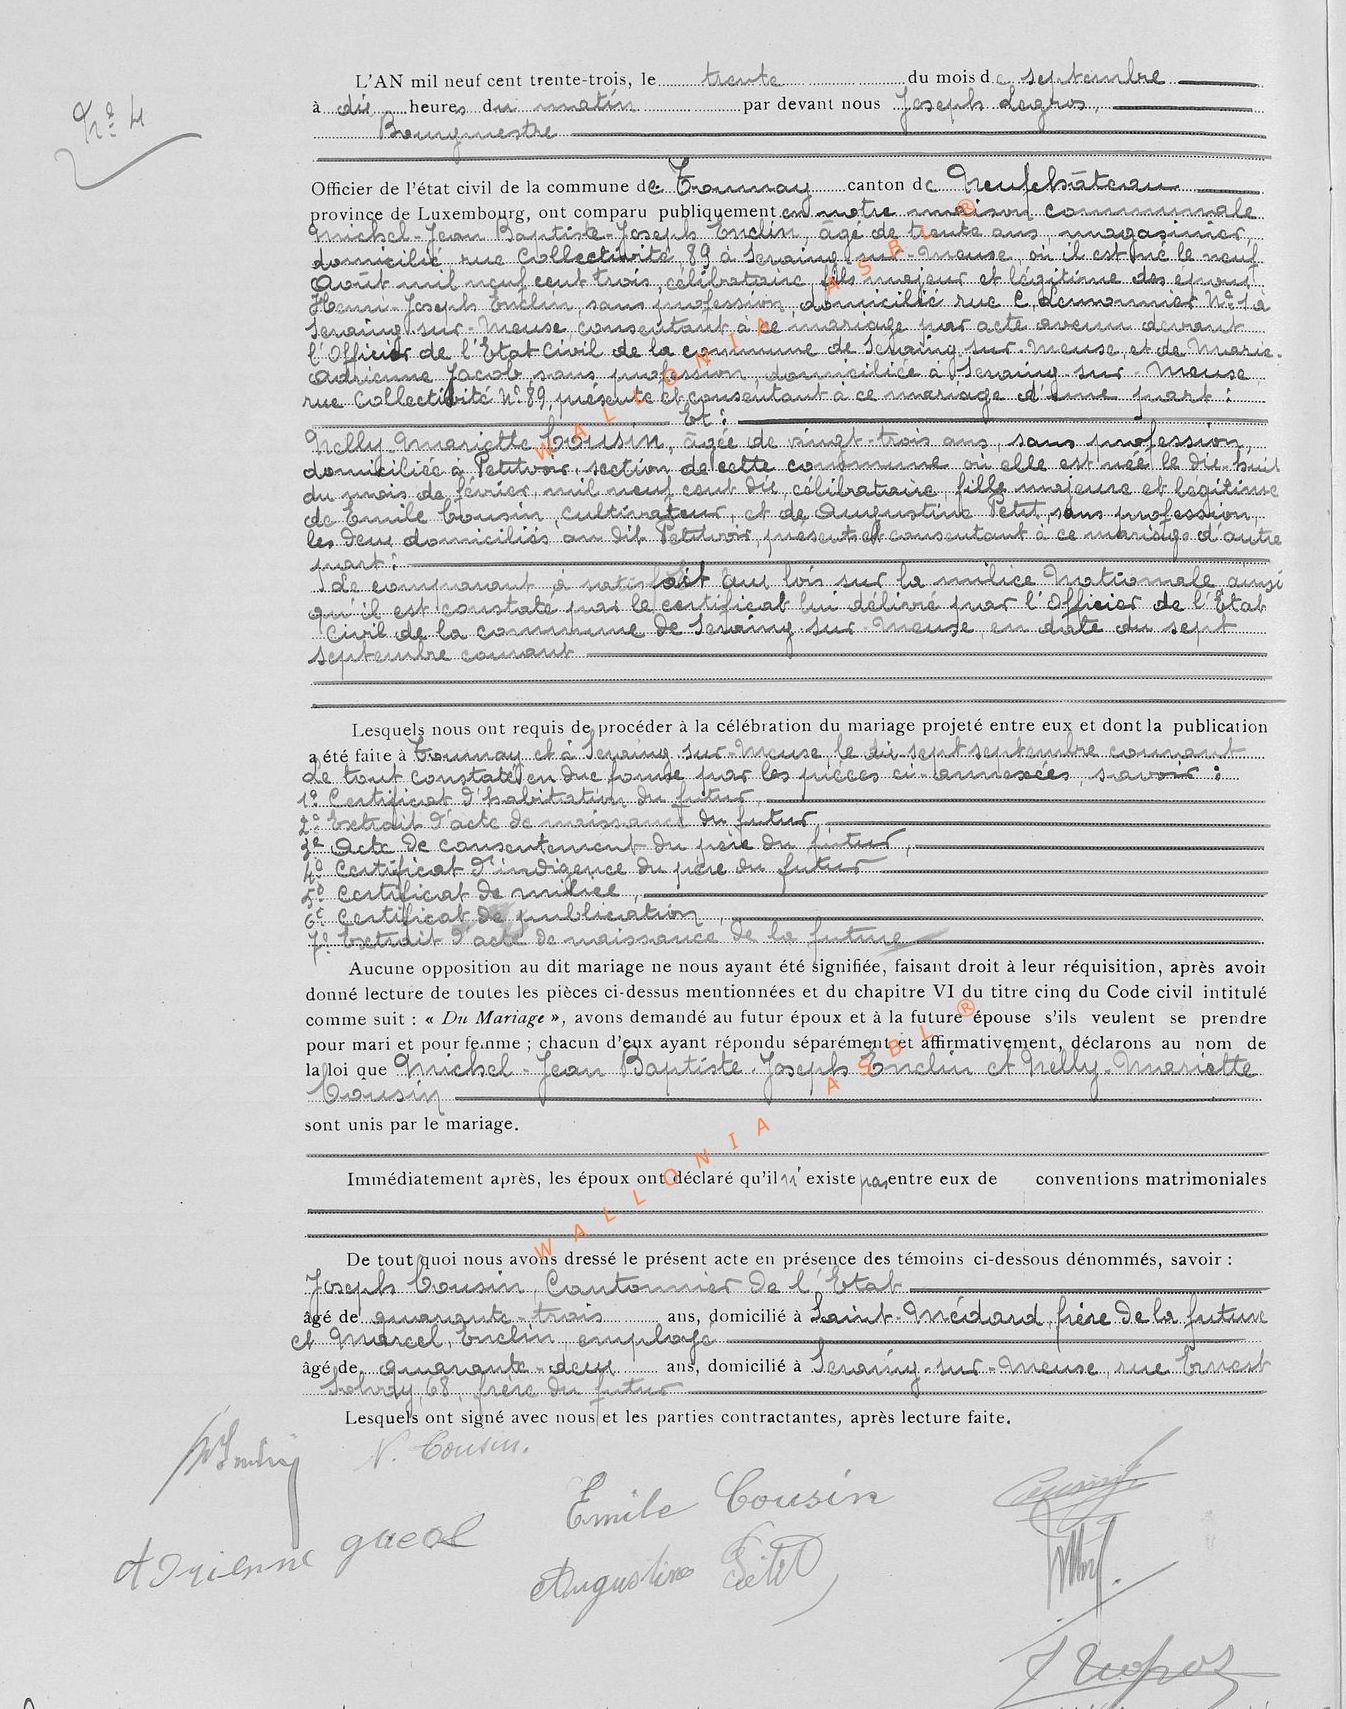 N° 4
L'AN mil neuf cent trente-trois, le trente du mois de septembre
à dix heures du matin par devant nous Joseph Legros,
Bourgmestre
Officier de l'état civil de la commune de Tournay canton de Neufchâteau
province de Luxembourg, ont comparu publiquement en notre maison communale
Michel-Jean Baptiste-Joseph Enclin, âgé de trente ans, magasinier,
domicilié rue Collectivité 89 à Seraing-sur-Meuse, où il est né le neuf
Août mil neuf cent trois, célibataire, fils majeur et légitime des époux
Henri-Joseph Enclin, sans profession, domicilié rue C. Lemonnier N° 1 à
Seraing-sur-Meuse consentant à ce mariage par acte avenu devant
l'Officier de l'Etat Civil de la commune de Seraing-sur-Meuse, et de Marie-
Adrienne Jacob, sans profession, domiciliée à Seraing-sur-Meuse
rue Collectivité N° 89, présente et consentant à ce mariage d'une part :
Et :
Nelly-Mariette Cousin, âgée de vingt-trois ans, sans profession,
domiciliée à Petitvoir, section de cette commune où elle est née le dix-huit
du mois de février, mil neuf cent dix, célibataire, fille majeure et légitime
de Emile Cousin, cultivateur, et de Augustine Petit, sans profession,
les deux domiciliés au dit Petitvoir, présents et consentant à ce mariage d'autre
part :
Le comparant à satisfait aux lois sur la milice Nationale ainsi
qu'il est constaté par le certificat lui délivré par l'Officier de l'Etat
Civil de la commune de Seraing-sur-Meuse, en date du sept
septembre courant
Lesquels nous ont requis de procéder à la célébration du mariage projeté entre eux et dont la publication
a été faite à Tournay et à Seraing-sur-Meuse, le dix-sept septembre courant
Le tout constaté en due forme par les pièces ci-annexées, savoir :
1° Certificat d'habitation du futur,
2° Extrait d'acte de naissance du futur
3° Acte de consentement du père du futur,
4° Certificat d'indigence du père du futur
5° Certificat de milice,
6° Certificat de publication,
7° Extrait d'acte de naissance de la future
Aucune opposition au dit mariage ne nous ayant été signifiée, faisant droit à leur réquisition, après avoir
donné lecture de toutes les pièces ci-dessus mentionnées et du chapitre VI du titre cinq du Code civil intitulé
comme suit : « Du Mariage », avons demandé au futur époux et à la future épouse s'ils veulent se prendre
pour mari et pour femme ; chacun d'eux ayant répondu séparément et affirmativement, déclarons au nom de
la loi que Michel-Jean Baptiste-Joseph Enclin et Nelly-Mariette
Cousin
sont unis par le mariage.
Immédiatement après, les époux ont déclaré qu'il n'existe pas entre eux de conventions matrimoniales
De tout quoi nous avons dressé le présent acte en présence des témoins ci-dessous dénommés, savoir :
Joseph Cousin, Cantonnier de l'Etat
âgé de quarante-trois ans, domicilié à Saint-Médard, frère de la future
et Marcel Enclin, employé
âgé de quarante-deux ans, domicilié à Seraing-sur-Meuse, rue Ernest
Solvay, 68, frère du futur
Lesquels ont signé avec nous et les parties contractantes, après lecture faite.
N. Cousin.
Emile Cousin
Adrienne Jacob
Augustine Petit
WALLONIA ASBL ®
WALLONIA ASBL ®